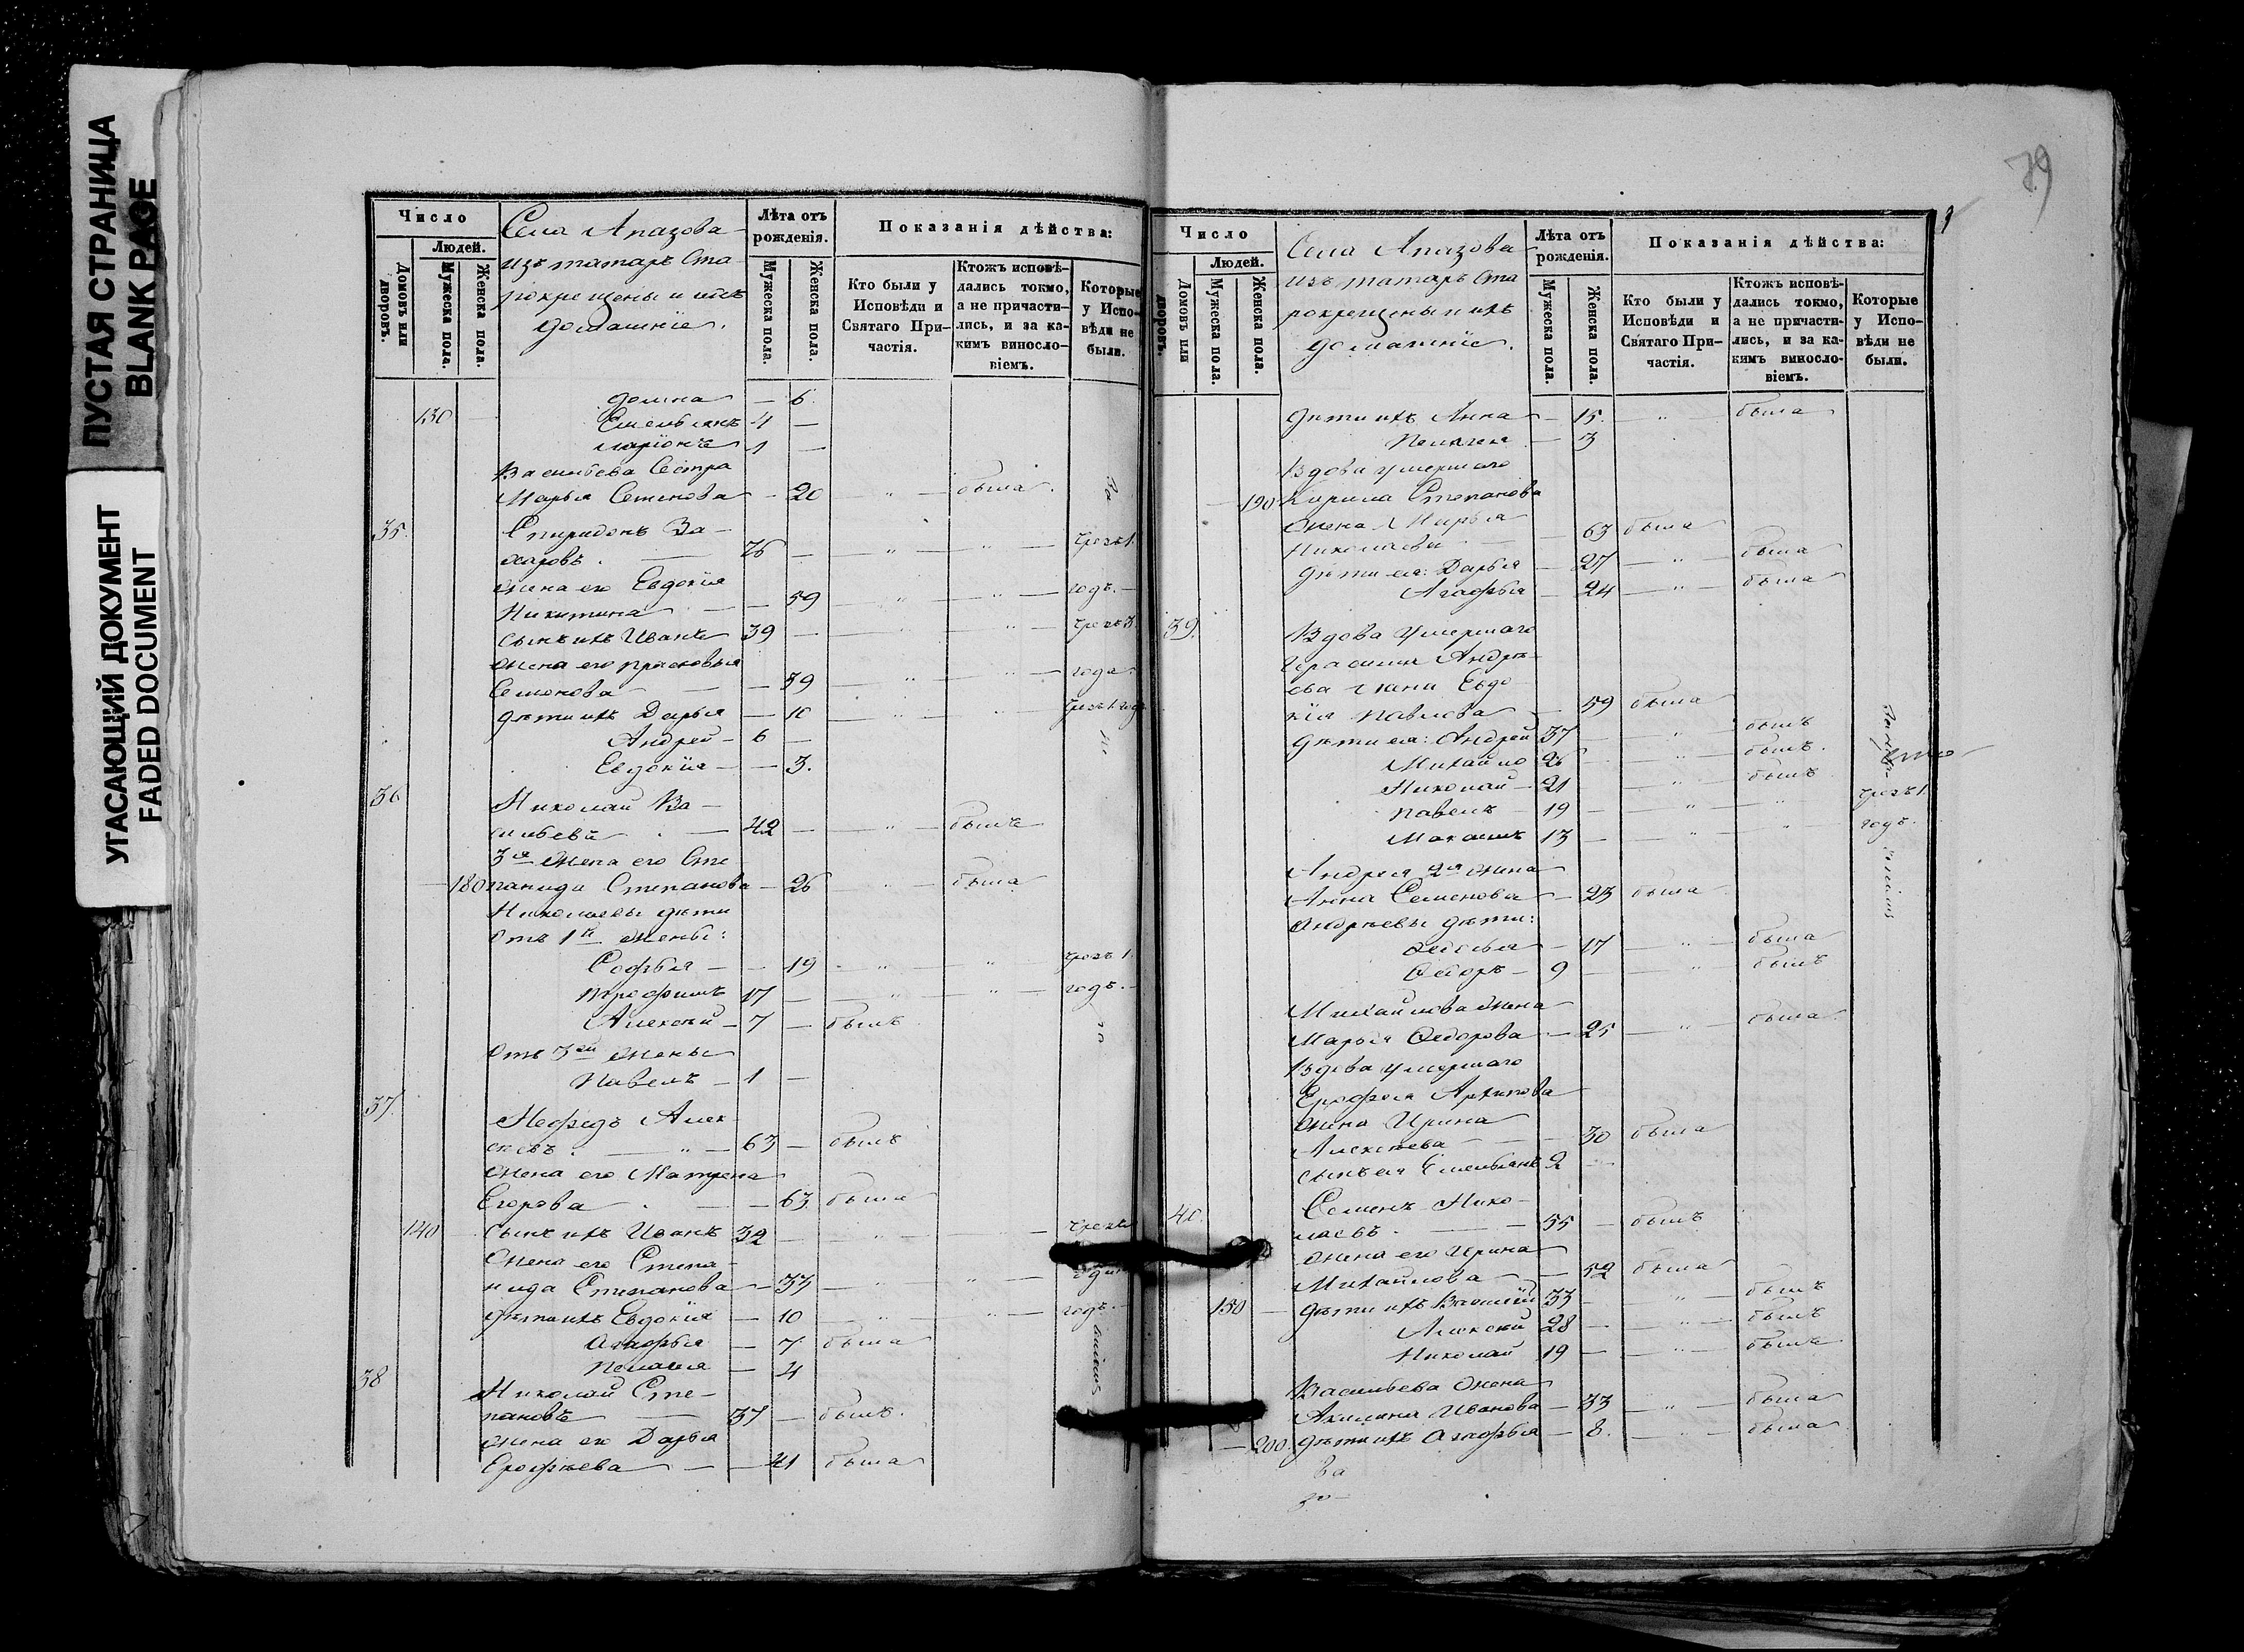 ПУСТАЯ СТРАНИЦА
BLANK PAGE
УГАСАЮЩИЙ ДОКУМЕНТ
FADED DOCUMENT
Число
Людей.
Домовъ или дворовъ.
Мужеска пола.
Женска пола.
Села Апазова
изъ татаръ Ста-
рокрещены и ихъ
домашніе.
Лѣта отъ рожденія.
Мужеска пола.
Женска пола.
Показанія дѣйства:
Кто были у Исповѣди и Святаго При-частія.
Ктожъ исповѣ-дались токмо, а не причасти-лись, и за ка-кимъ винословіемъ.
Которые у Испо-вѣди не были.
Домна — 6.
130 Емельянъ 4 —
Ларіонъ 1 —
Васильева Сестра
Марья Семенова — 20 — " — была.
35. Спиридонъ За-
харовъ. 76 — " — " — чрезъ 1.
жена его Евдокія
Никитина — 59 — " — " — годъ.
сынъ ихъ Иванъ 39 — " — " — чрезъ 3.
жена его Прасковья
Семенова — 39 — " — " — года.
дѣти ихъ Дарья — 10 — " — " — чрезъ 1 годъ
Андрей — 6 —
Евдокія — 3.
36 Николай Ва-
сильевъ. — 42 — " — былъ
3я жена его Сте-
180 панида Степанова — 26 — " — была
Николаевы дѣти
отъ 1й жены:
Софья — 19 — " — " чрезъ 1.
Трофимъ 17 — " — " — годъ.
Алексѣй — 7 — былъ
Отъ 3ей жены
Павелъ — 1 —
37. Мефодъ Алек-
сѣевъ. — " — 63 — былъ
жена его Матрена
Егорова. — 63. была
140 Сынъ ихъ Иванъ 32 — " —
Жена его Степа-
нида Степанова — 33 — " — " —
дѣти ихъ Евдокія — 10 — " — " — годъ.
Агафья — 7 была
Пелагея — 4
38 Николай Сте-
пановъ — 37 — былъ.
жена его Дарья
Ерофѣева — 41 была
79
Число
Людей.
Домовъ или дворовъ.
Мужеска пола.
Женска пола.
Села Апазова
изъ татаръ Ста-
рокрещены и ихъ
домашніе.
Лѣта отъ рожденія.
Мужеска пола.
Женска пола.
Показанія дѣйства:
Кто были у Исповѣди и Святаго При-частія.
Ктожъ исповѣ-дались токмо, а не причасти-лись, и за ка-кимъ винословіемъ.
Которые у Испо-вѣди не были.
дѣти ихъ Анна — 15. — " — была
Пелагея — 3
Вдова умершаго
190 Кирила Степанова
Жена Марья
Николаева — 63 была
дѣти ея: Дарья — 27 — " — была
Агафья — 24 — " — была
39. Вдова умершаго
Герасима Андрѣ-
ева жена Евдо-
кія Павлова — 59 была
дѣти ея: Андрей 37 — " былъ
Михайло 26 — " былъ.
Николай — 21 " былъ
Павелъ — 19 — " — " чрезъ 1
13 — " — " годъ.
Андрея 2я жена
Анна Семенова — 23 была
Андрѣевы дѣти:
17 — " — была
Ѳедоръ — 9 — " — былъ
Михайлова жена
Марья Ѳедорова — 25 — " — была
Вдова умершаго
Ерофея Архипова
жена Ирина
Алексѣева — 30 была
сынъ ея Емельянъ 2 —
40. Семенъ Нико-
лаевъ. — 55 — былъ
жена его Ирина
Михайлова — 52 была
150 — дѣти ихъ Василій 33 — " — былъ
Алексѣй 28 — " — былъ
Николай 19 — " — былъ
Васильева жена
Акилина Иванова — 33 — " — была
200. дѣти ихъ Агафья — 8. — " — была